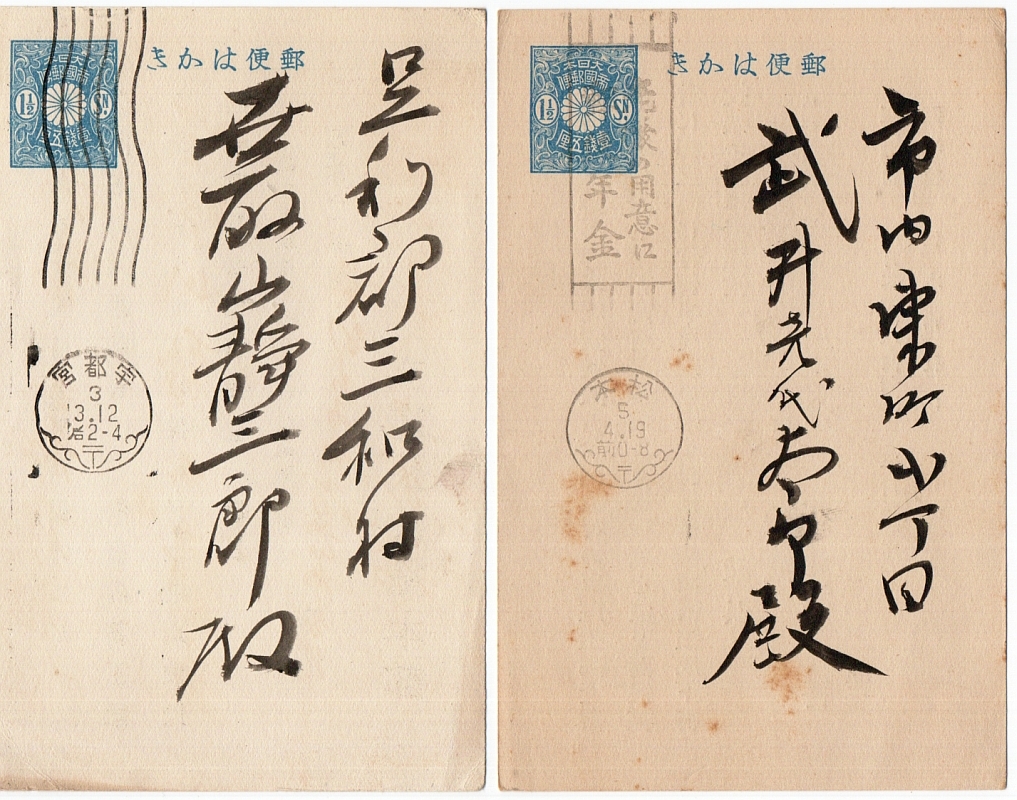 郵便はかき
大日本
帝國郵便
1½ SN.
壹錢五厘
足利郡三和村
静三郎殿
宇都宮
3
3.12
后2-4
〒
郵便はかき
大日本
帝國郵便
1½ SN.
壹錢五厘
用意に
年金
市内東町
武井
殿
松本
5.
4.19
前0-8
〒